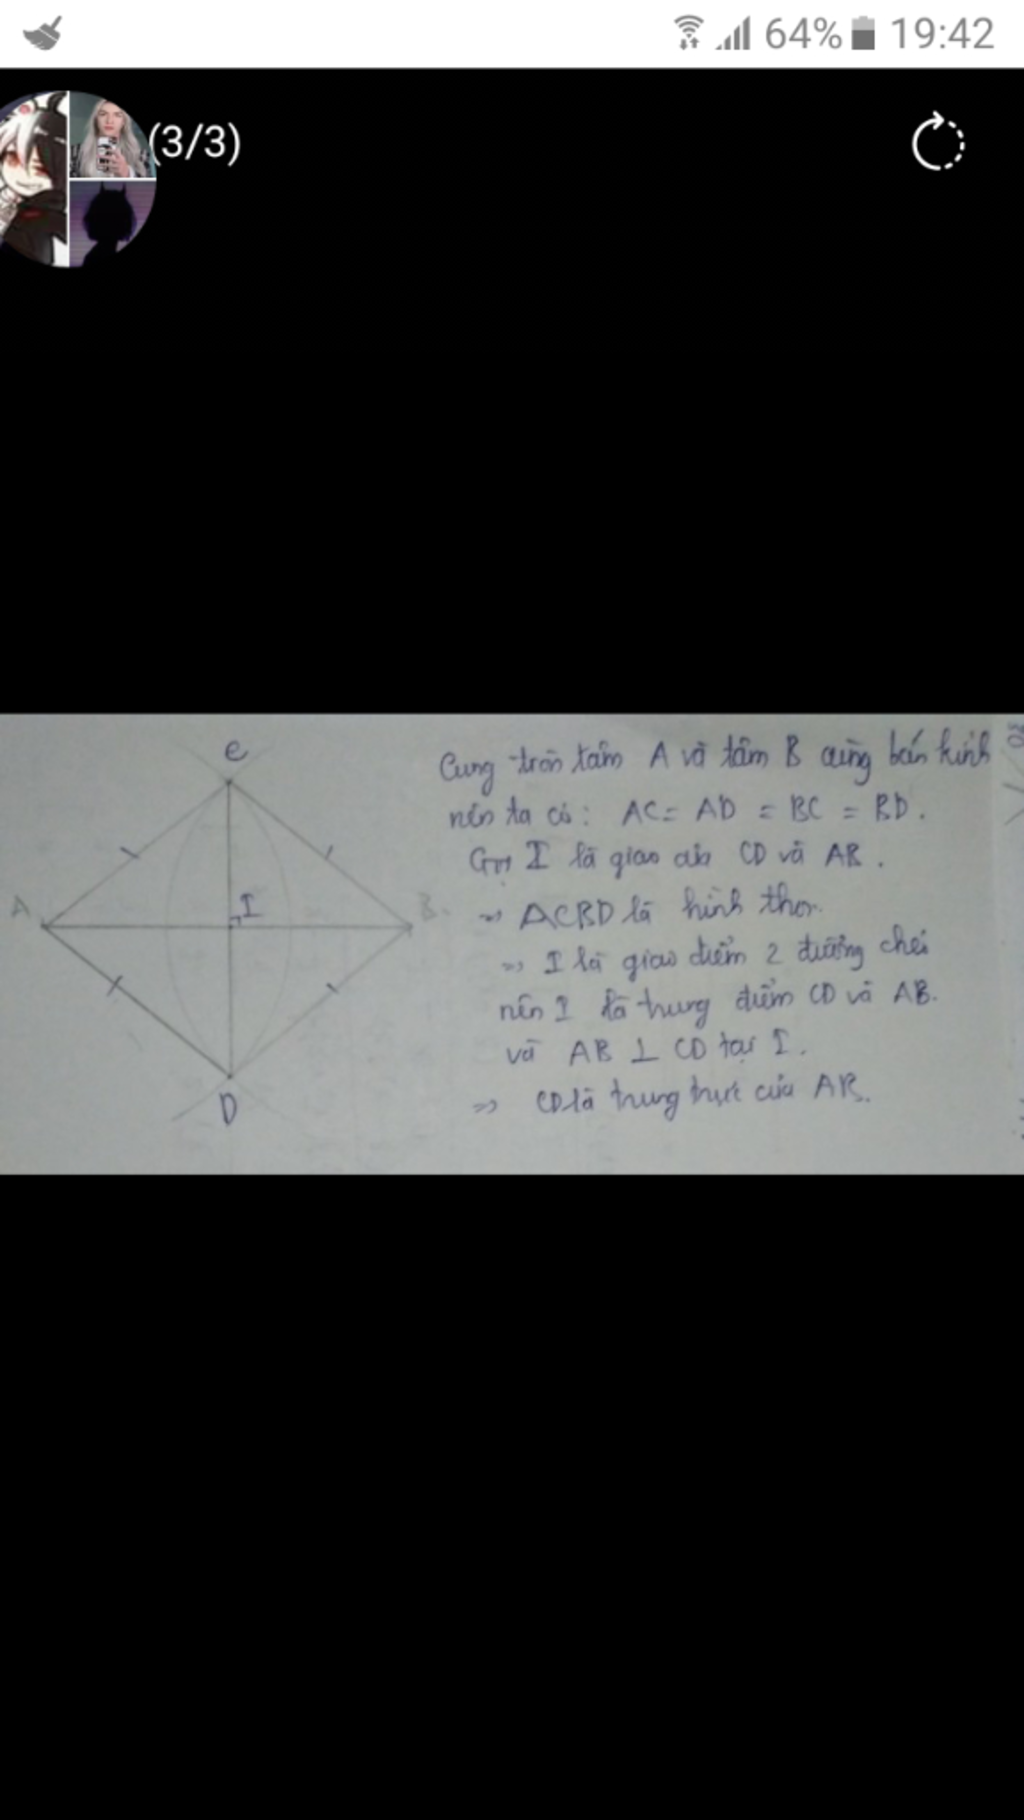 64% 19:42
(3/3)
C
A
I
B
D
Cung tròn tâm A và tâm B cùng bán kính
nên ta có: AC = AD = BC = BD.
Gọi I là giao của CD và AB.
=> ACBD là hình thoi.
=> I là giao điểm 2 đường chéo
nên I là trung điểm CD và AB.
và AB ⊥ CD tại I.
=> CD là trung trực của AB.